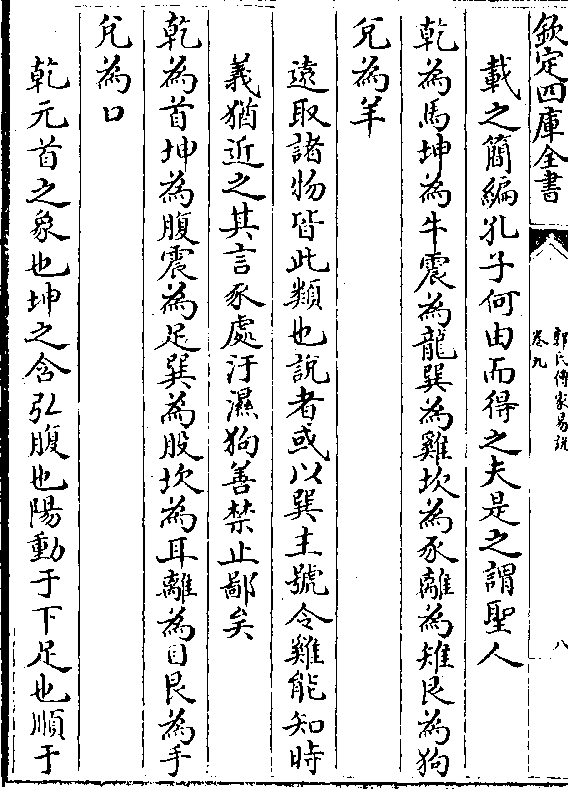 欽定四庫全書
郭氏傳家易說
卷九
八
載之簡編孔子何由而得之夫是之謂聖人
乾為馬坤為牛震為龍巽為雞坎為豕離為雉艮為狗
兌為羊
遠取諸物皆此類也說者或以巽主號令雞能知時
義猶近之其言豕處汙濕狗善禁止鄙矣
乾為首坤為腹震為足巽為股坎為耳離為目艮為手
兌為口
乾元首之象也坤之含弘腹也陽動于下足也順于